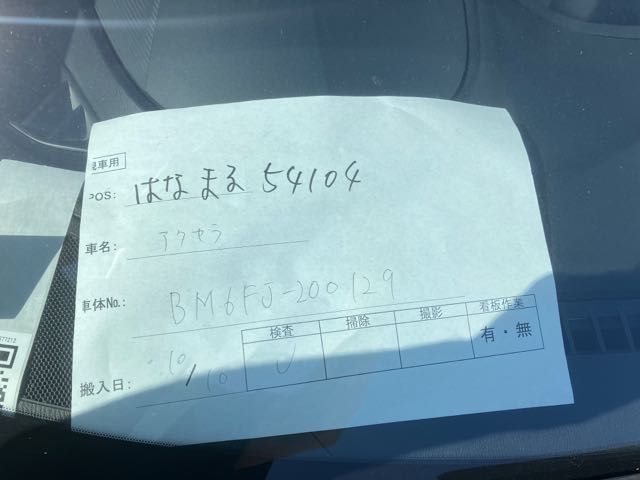 車用
POS: はなまる 54104
車名: アクセラ
車体No.: BM6FJ-200129
検査 掃除 撮影 看板作業
有・無
搬入日: 10/10